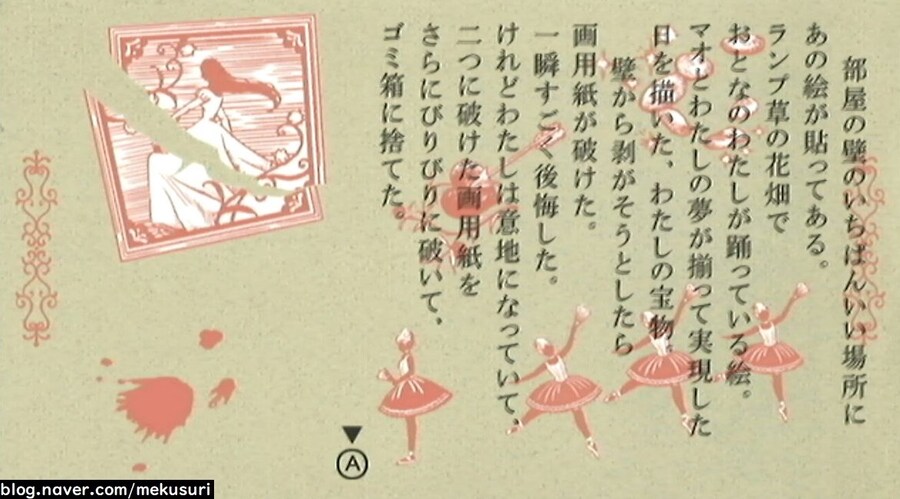 部屋の壁のいちばんいい場所に
あの絵が貼ってある。
ランプ草の花畑で
おとなのわたしが踊っている絵。
マオとわたしの夢が揃って実現した
日を描いた、わたしの宝物。
壁から剥がそうとしたら
画用紙が破けた。
一瞬すごく後悔した。
けれどわたしは意地になっていて、
二つに破けた画用紙を
さらにびりびりに破いて、
ゴミ箱に捨てた。
A
blog.naver.com/mekusuri